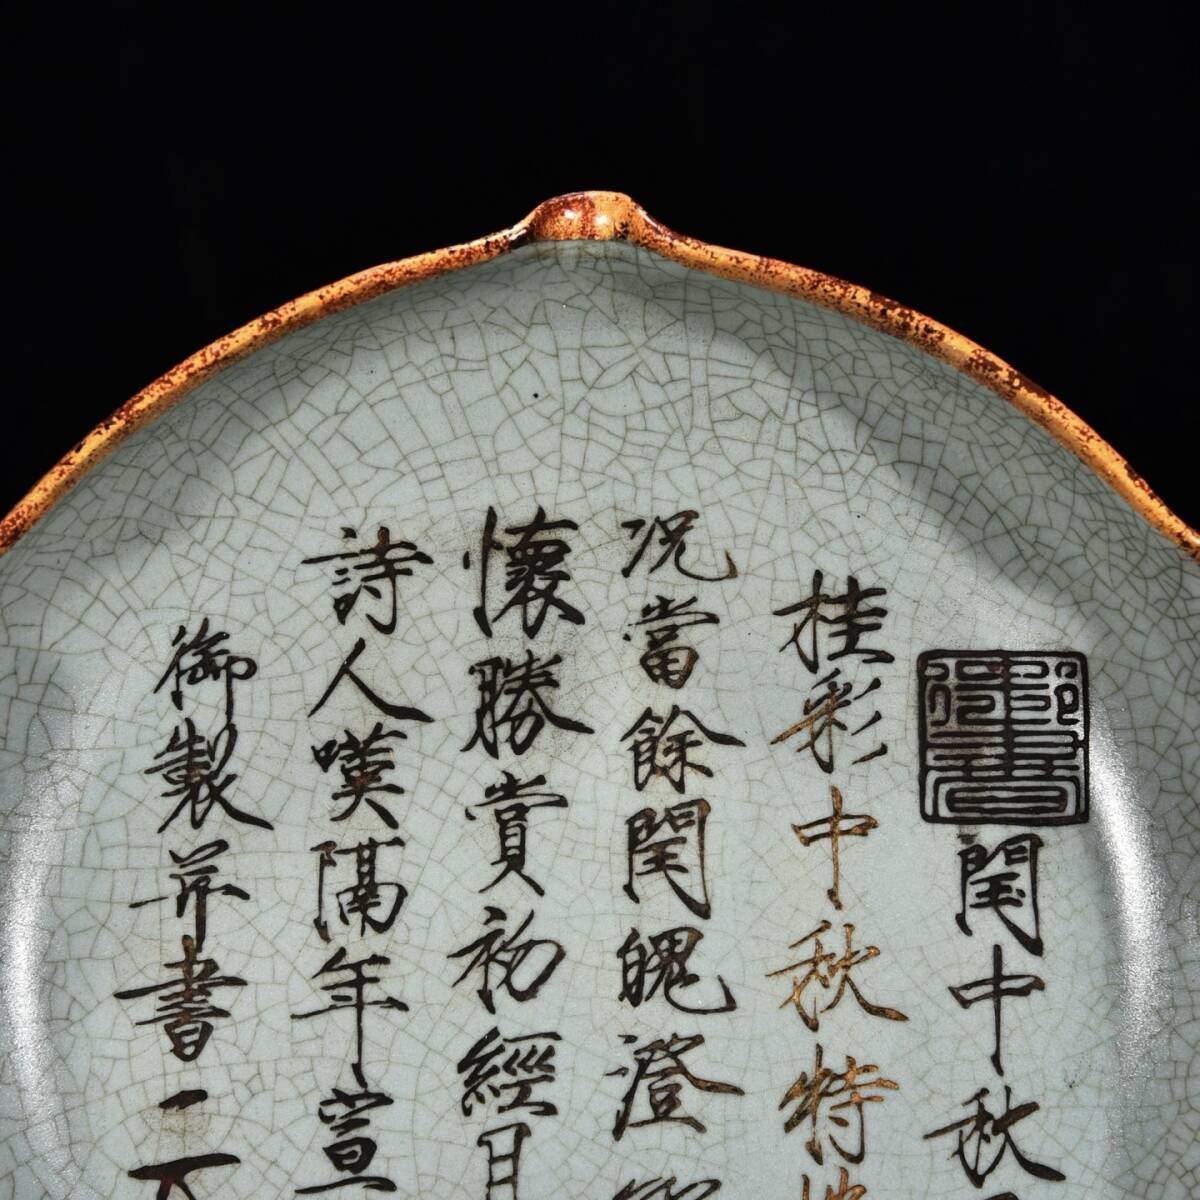 御書
閏中秋
桂彩中秋特地
況當餘閏魄澄
懷勝賞初經月
詩人嘆隔年宣
御製并書一